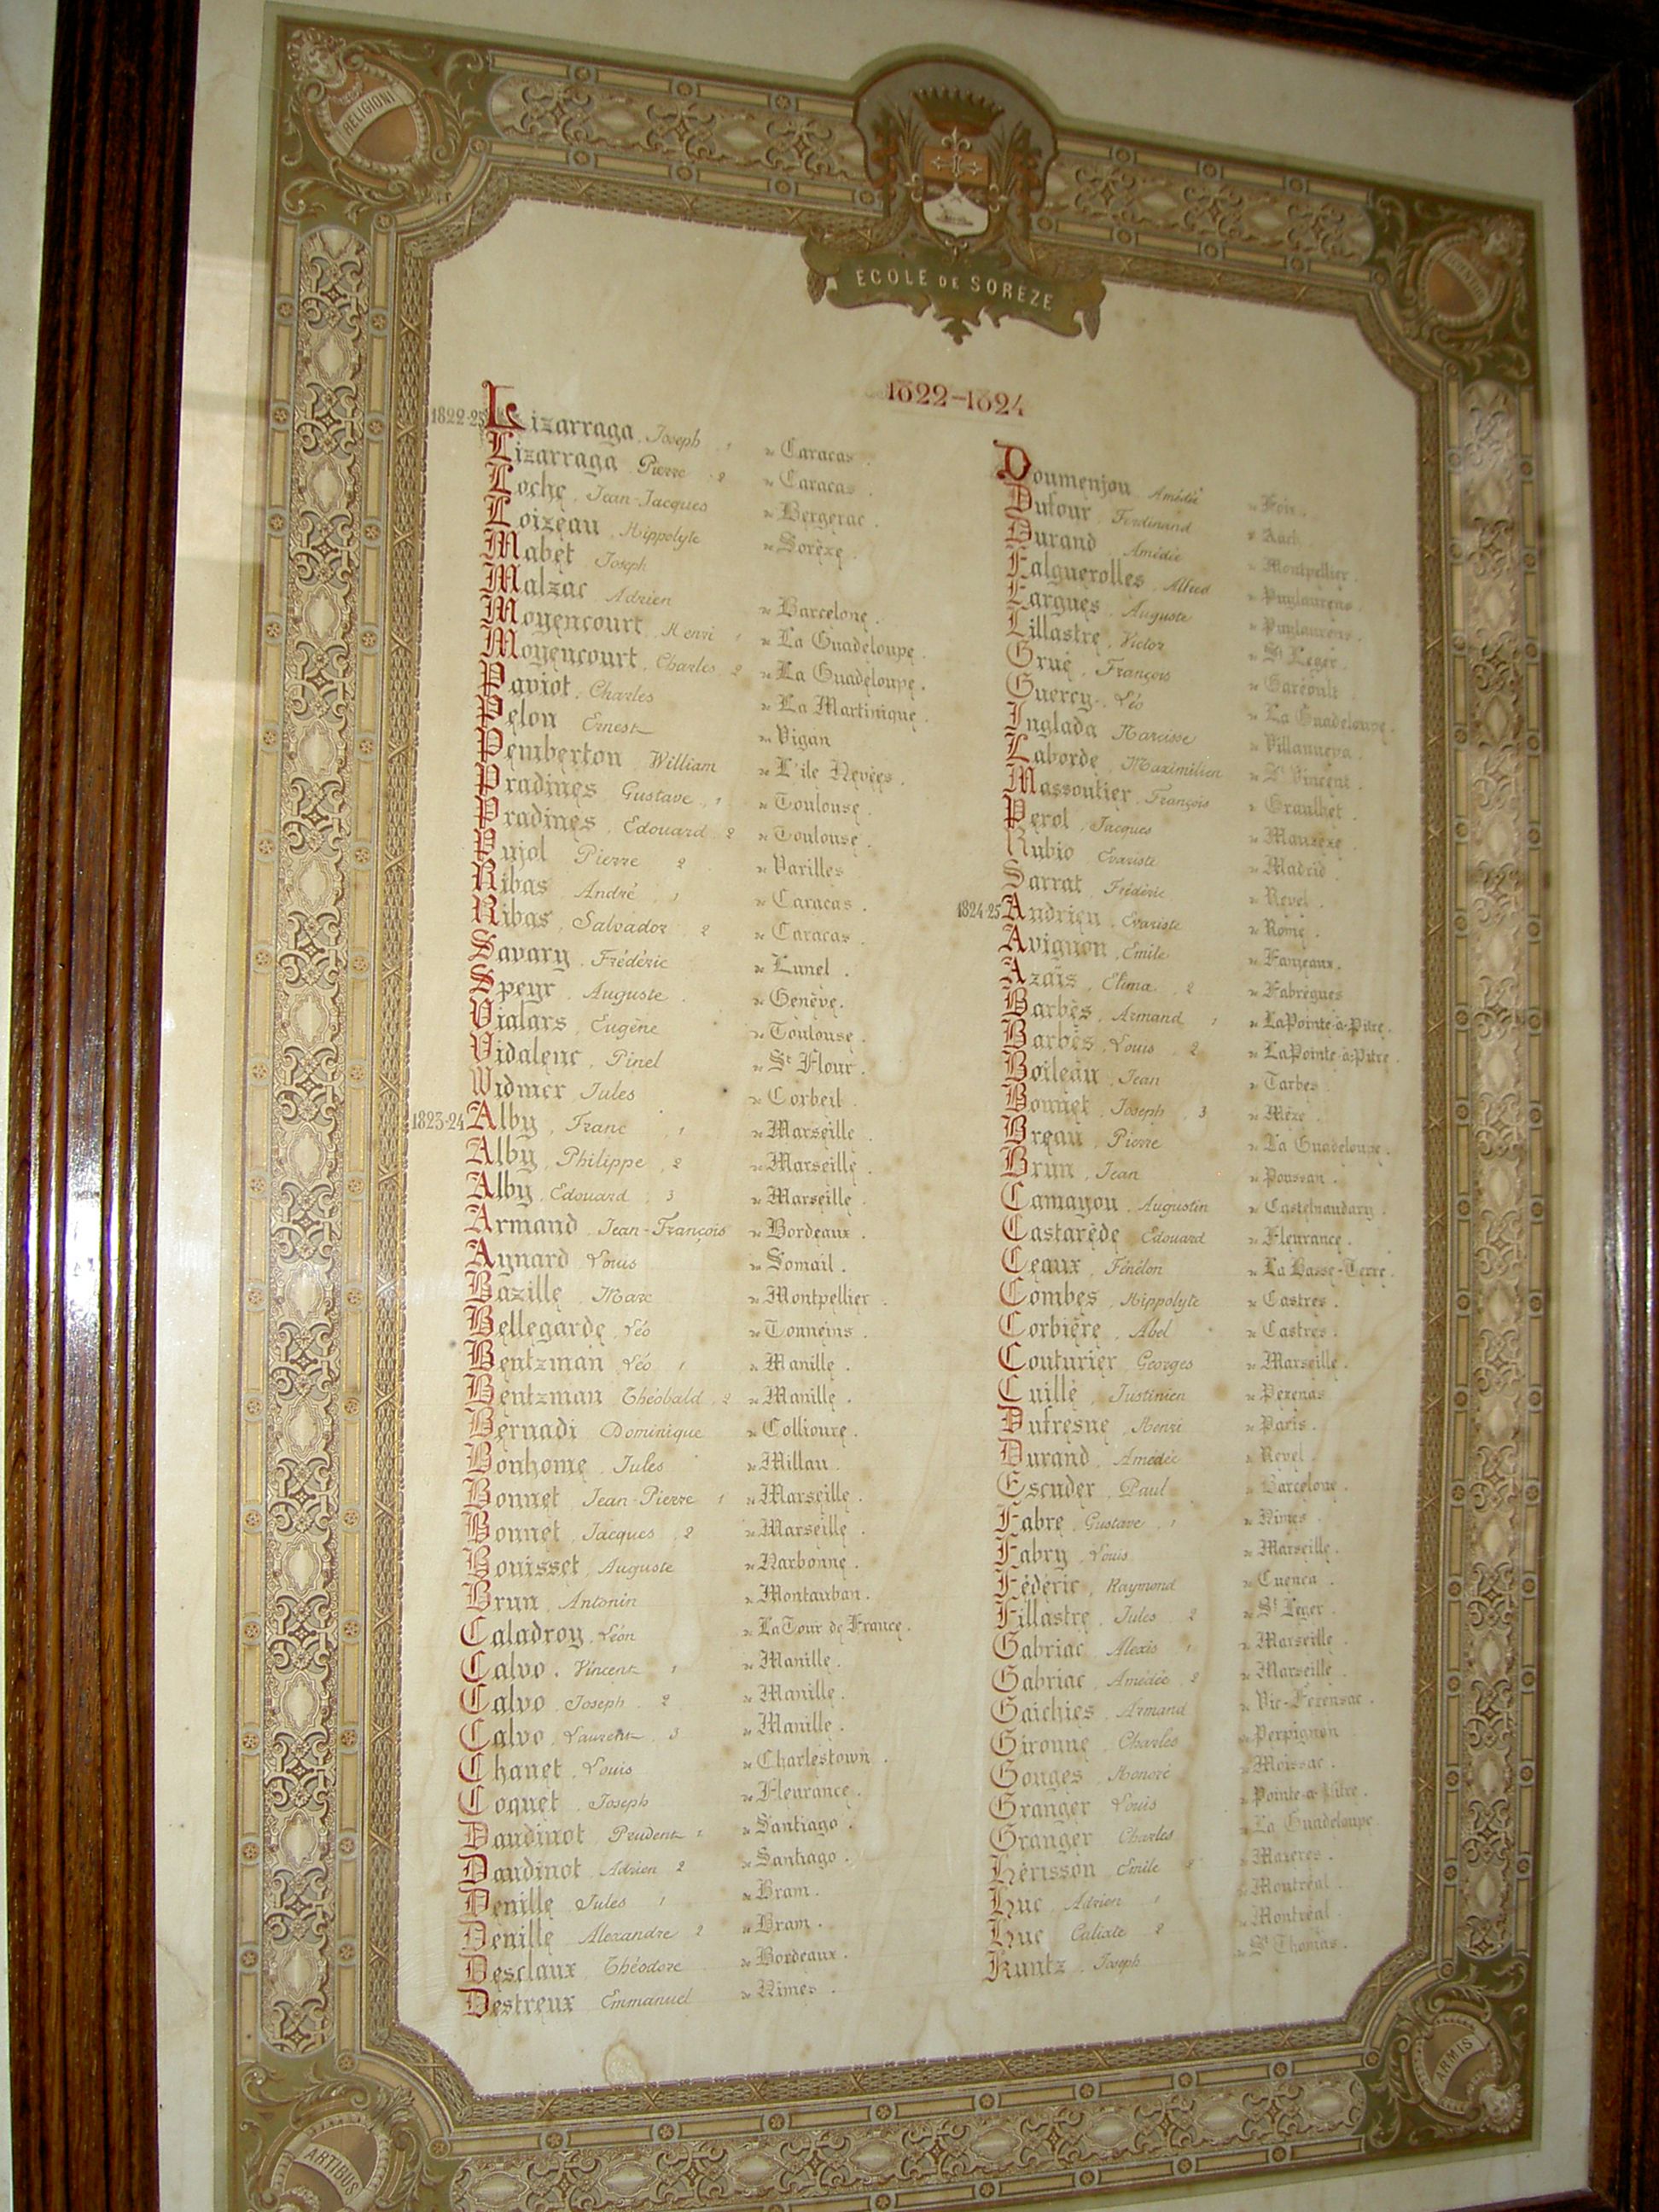 RELIGIONI
ECOLE DE SORÈZE
1822-1824
1822-23 Lizarraga, Joseph, 1 de Caracas.
Lizarraga, Pierre, 2 de Caracas.
Loche, Jean-Jacques de Bergerac.
Loizeau, Hippolyte de Sorèze.
Mabet Joseph
Malzac Adrien de Barcelone.
Moyencourt, Henri 1 de La Guadeloupe.
Moyencourt, Charles 2 de La Guadeloupe.
Paviot, Charles de La Martinique.
Pelon Ernest de Vigan
Pemberton William de L'ile Nevées.
Pradines Gustave, 1 de Toulouse.
Pradines, Edouard, 2 de Toulouse.
Pujol Pierre 2 de Varilles
Ribas André, 1 de Caracas.
Ribas, Salvador, 2 de Caracas.
Savary, Frédéric de Lunel.
Speyr, Auguste. de Genève.
Vialars, Eugène de Toulouse.
Vidalenc, Pinel de St Flour.
Widmer Jules de Corbeil.
1823-24 Alby, Franc, 1 de Marseille.
Alby, Philippe, 2 de Marseille.
Alby, Edouard, 3 de Marseille.
Armand, Jean-François de Bordeaux.
Aynard Louis de Somail.
Bazille, Marc de Montpellier.
Bellegarde, Léo de Tonneins.
Bentzman Léo, 1 de Manille.
Bentzman Théobald, 2 de Manille.
Bernadi Dominique de Collioure.
Bonhome, Jules de Millau.
Bonnet Jean-Pierre 1 de Marseille.
Bonnet, Jacques, 2 de Marseille.
Bouisset, Auguste de Narbonne.
Brun, Antonin de Montauban.
Caladroy, Léon de La Tour de France.
Calvo, Vincent 1 de Manille.
Calvo Joseph, 2 de Manille.
Calvo, Laurent, 3 de Manille.
Chanet, Louis de Charlestown.
Coquet, Joseph de Fleurance.
Daudinot Prudent 1 de Santiago.
Daudinot Adrien 2 de Santiago.
Denille Jules 1 de Bram.
Denille Alexandre 2 de Bram.
Desclaux Théodore de Bordeaux.
Destreux Emmanuel de Nimes.
Doumenjou Amédée de Foix.
Dufour, Ferdinand de Auch.
Durand, Amédée de Montpellier.
Falguerolles, Alfred de Puylaurens.
Fargues, Auguste de Puylaurens.
Lillastre, Victor de St Léger.
Grué, François de Garéoult.
Guercy, Léo de La Guadeloupe.
Inglada Narcisse de Villanueva.
Laborde, Maximilien de St Vincent.
Massoutier, François de Graulhet.
Perol, Jacques de Mansèze.
Rubio Evariste de Madrid.
Sarrat Frédéric de Revel.
1824-25 Andrieu, Evariste de Rome.
Avignon, Emile de Fanjeaux.
Azaïs, Elima, 2 de Fabrègues
Barbès, Armand, 1 de La Pointe-à-Pitre.
Barbès, Louis, 2 de La Pointe-à-Pitre.
Boileau, Jean de Tarbes.
Bonnet, Joseph, 3 de Mèze.
Breau, Pierre de La Guadeloupe.
Brun, Jean de Poussan.
Camayou, Augustin de Castelnaudary.
Castarède Edouard de Fleurance.
Ceaux, Fénélon de La Basse-Terre.
Combes, Hippolyte de Castres.
Corbière, Abel de Castres.
Couturier, Georges de Marseille.
Cuillé, Justinien de Pezenas
Dufresne, Henri de Paris.
Durand, Amédée de Revel.
Escuder, Paul de Barcelone.
Fabre, Gustave, 1 de Nimes.
Fabry, Louis de Marseille.
Fédéric, Raymond de Cuenca.
Fillastre, Jules 2 de St Léger.
Gabriac Alexis 1 de Marseille.
Gabriac, Amédée, 2 de Marseille.
Gaichies, Armand de Vic-Fezensac.
Gironne, Charles de Perpignan
Gouges, Honoré de Moissac.
Granger Louis de Pointe-a-Pitre.
Granger Charles de La Guadeloupe
Hérisson Emile 2 de Mazères.
Huc, Adrien 1 de Montréal.
Huc, Calixte 2 de Montréal.
Kuntz, Joseph de St Thomas.
ARTIBUS
ARMIS